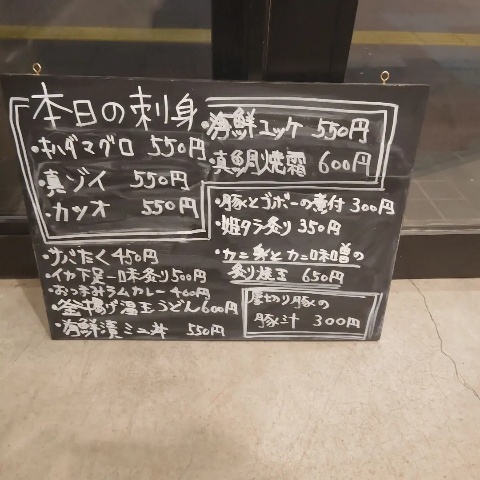 本日の刺身
・キハダマグロ 550円
・真ゾイ 550円
・カツオ 550円
・海鮮ユッケ 550円
・真鯛焼霜 600円
・豚とゴボーの煮付 300円
・姫タラ炙り 350円
・カニ身とカニ味噌の
炙り焼玉 650円
・サバたく 450円
・イカ下足一味炙り 500円
・おつまみラムカレー 460円
・釜揚げ温玉うどん 600円
・海鮮漬ミニ丼 550円
厚切り豚の
豚汁 300円